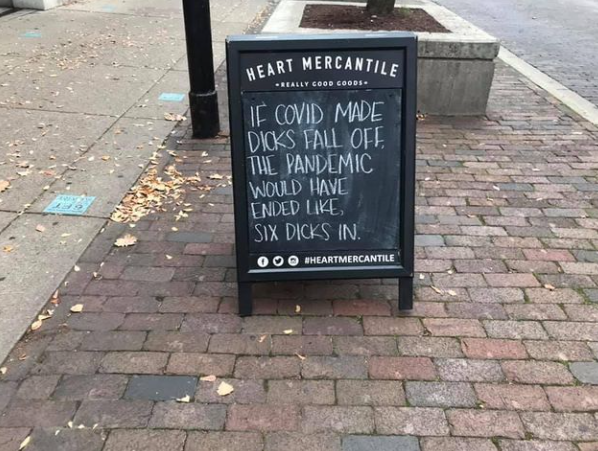 HEART MERCANTILE
•REALLY GOOD GOODS•
IF COVID MADE
DICKS FALL OFF,
THE PANDEMIC
WOULD HAVE
ENDED LIKE,
SIX DICKS IN.
#HEARTMERCANTILE